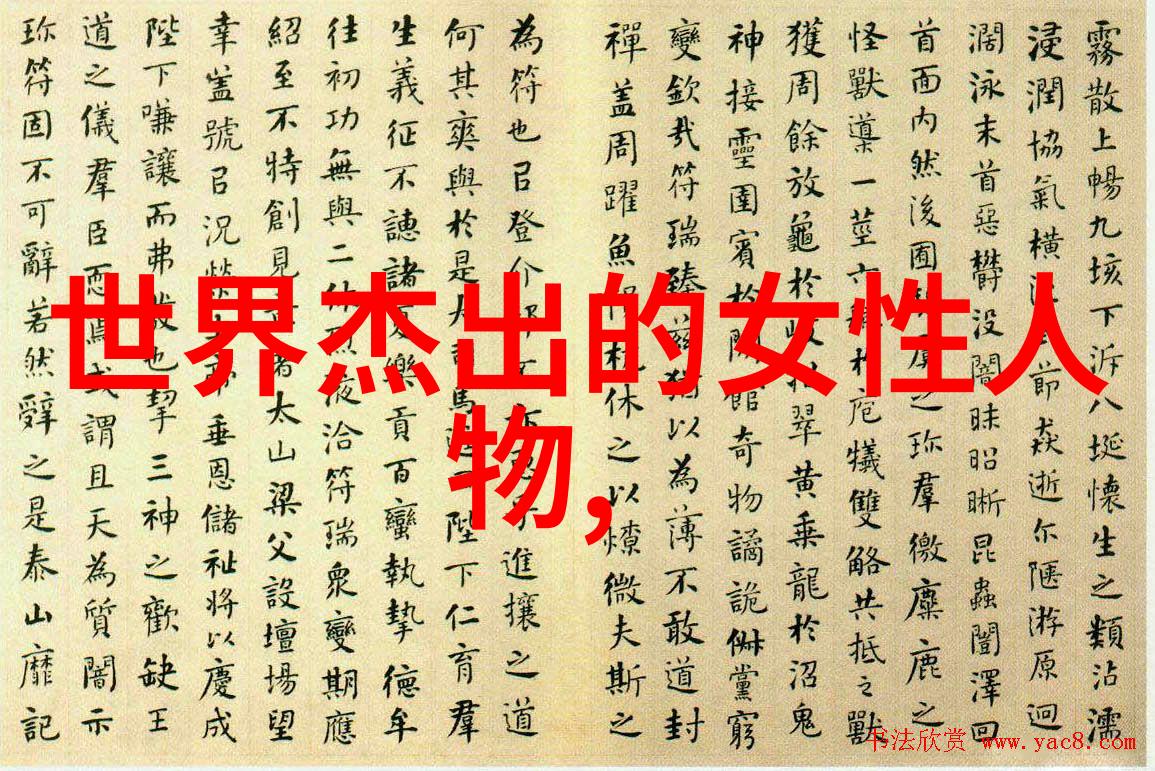 霧散上暢九垓下泝八埏懷生之類沾濡
浸潤協氣橫節猋逝尔陿游原迥
濶泳末首惡欝没闇昧昭晰昆蟲闓澤回
首面内然後囿之珎羣徼麋鹿之
怪獸導一莖六於庖犧雙觡共抵之獸
獲周餘放龜於岐招翠黄乘龍於沼鬼
神接靈圉賓於閒館奇物譎詭俶儻窮
變欽哉符瑞臻兹猶以為薄不敢道封
禪盖周躍魚隕杭休之以燎微夫斯之
為符也㠯登介進攘之道
何其爽與於是大司馬陛下仁育羣
生義征不譓諸夏樂貢百蠻執摯德牟
往初功無與二休液洽符瑞衆變期應
紹至不特創見者太山梁父設壇場望
幸盖號㠯况垂恩儲祉将以慶成
陛下嗛讓而弗發也挈三神之歡缺王
道之儀羣臣恧焉或謂且天為質闇示
珎符固不可辭若然辤之是泰山靡記
世界杰出的女性人
物,
书法欣赏 www.yac8.com